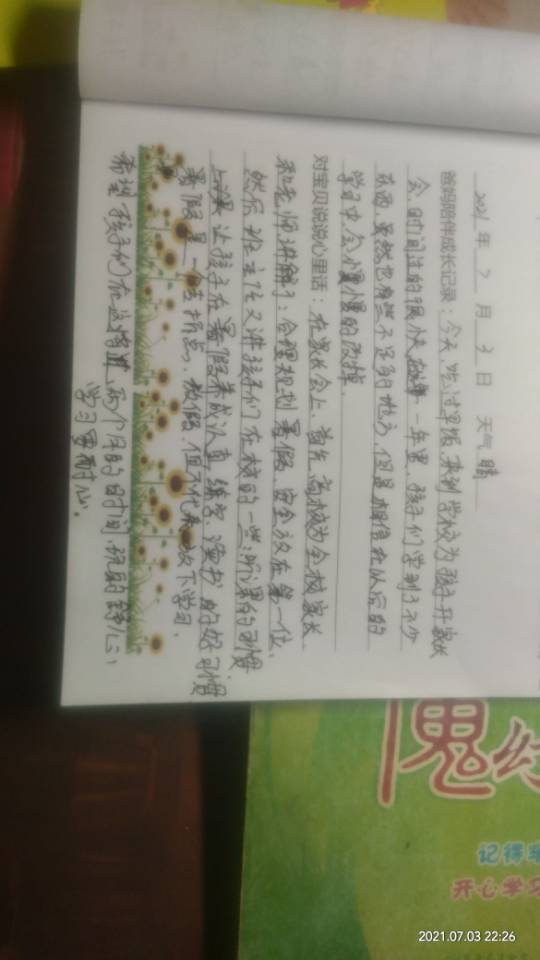 2021年7月3日 天气晴
爸妈陪伴成长记录：今天吃过早饭，来到学校为孩子开家长
会，时间过的很快，一年里，孩子们学到了不少
东西，虽然也有些不足的地方，但是相信在以后的
学习中，会慢慢的改掉。
对宝贝说说心里话：在家长会上，首先高校为全校家长
和老师讲解了：合理规划暑假，安全放在第一位，
然后班主任又讲孩子们在校的一些：听课的习惯
上课 让孩子在暑假养成认真 练字、读书的好习惯
暑假是一个转折点，放假，但不代表放下学习，
希望孩子们在这将进两个月的时间 玩的
学习要耐心。
魔幻
记得
开心学习
2021.07.03 22:26